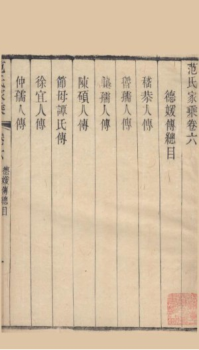 范氏家乘卷六
德媛傳總目
嵇恭人傳
孺人傳
孺人傳
陳碩人傳
節母譚氏傳
徐宜人傳
仲孺人傳
德媛傳總目